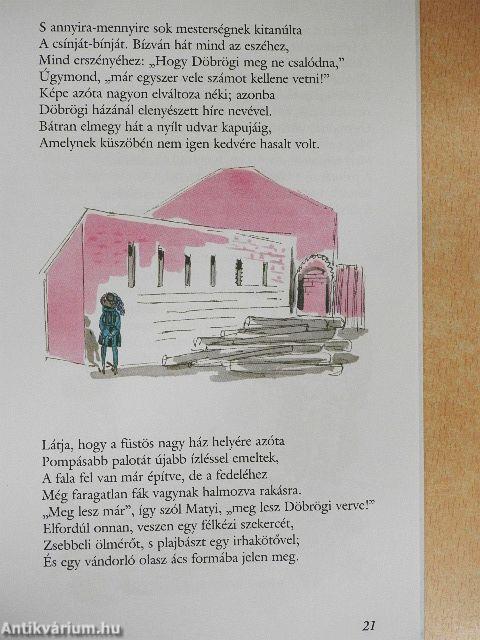 S annyira-mennyire sok mesterségnek kitanúlta
A csínját-bínját. Bízván hát mind az eszéhez,
Mind erszényéhez: „Hogy Döbrögi meg ne csalódna,”
Úgymond, „már egyszer vele számot kellene vetni!”
Képe azóta nagyon elváltoza néki; azonba
Döbrögi házánál elenyészett híre nevével.
Bátran elmegy hát a nyílt udvar kapujáig,
Amelynek küszöbén nem igen kedvére hasalt volt.
Látja, hogy a füstös nagy ház helyére azóta
Pompásabb palotát újabb ízléssel emeltek,
A fala fel van már építve, de a fedeléhez
Még faragatlan fák vagynak halmozva rakásra.
„Meg lesz már”, így szól Matyi, „meg lesz Döbrögi verve!”
Elfordúl onnan, veszen egy félkézi szekercét,
Zsebbeli ölmérőt, s plajbászt egy irhakötővel;
És egy vándorló olasz ács formába jelen meg.
21
Antikvárium.hu